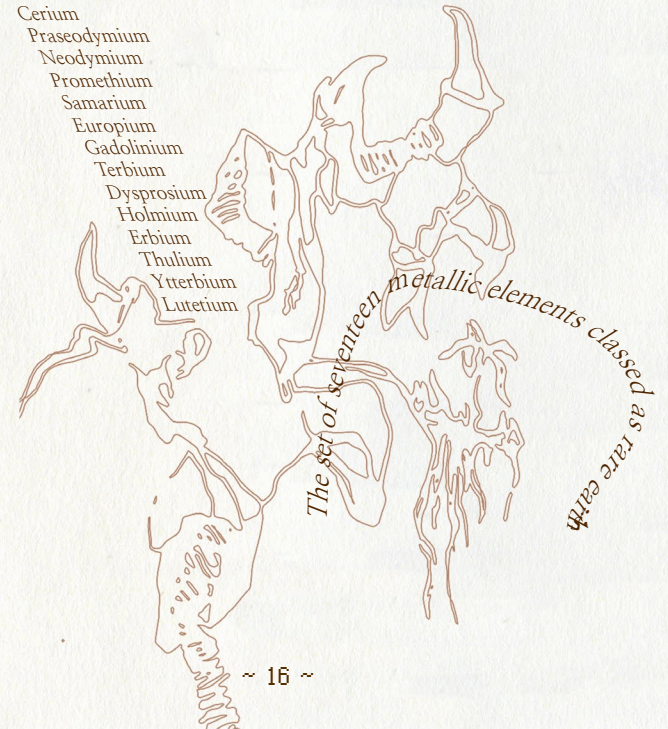 Cerium
Praseodymium
Neodymium
Promethium
Samarium
Europium
Gadolinium
Terbium
Dysprosium
Holmium
Erbium
Thulium
Ytterbium
Lutetium
The set of seventeen metallic elements classed as rare earth
~ 16 ~